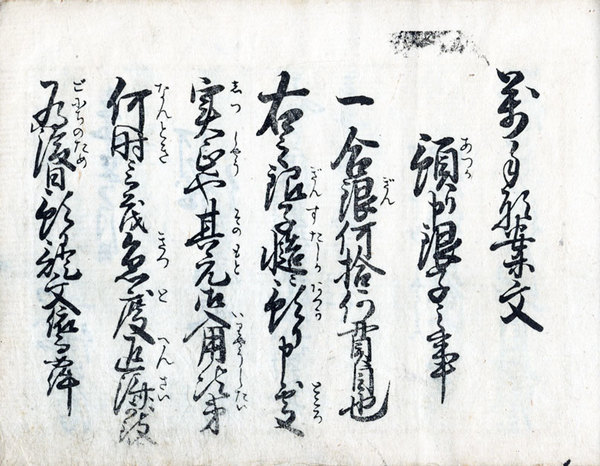 萬手形案文
預り申銀子之事
一合銀何拾何貫目也
右之銀子慥ニ預り申処
実正也其元御入用次第
何時ニ而茂急度返済致
為後日預證文依而如件